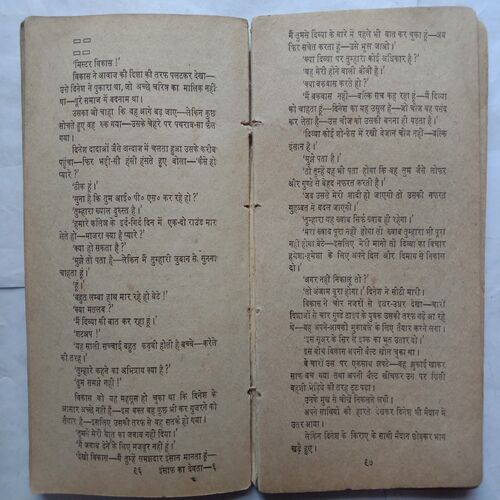 'मिस्टर विकास !'
विकास ने आवाज की दिशा की तरफ पलटकर देखा—
उसे दिनेश ने पुकारा था, जो अच्छे चरित्र का मालिक नहीं
था—पूरे समाज में बदनाम था।
उसका जी चाहा कि वह आगे बढ़ जाए—लेकिन कुछ
सोचते हुए वह रुक गया—उसके चेहरे पर घबराव-सा फैल
गया।
दिनेश दादाओं जैसे अन्दाज में चलता हुआ उसके करीब
पहुंचा—फिर भद्दी-सी हंसी हंसते हुए बोला—'कैसे हो
प्यारे ?'
'ठीक हूं।'
'सुना है कि तुम आई० पी० एस० कर रहे हो ?'
'तुम्हारा ख्याल दुरुस्त है।'
'हमारे कॉलेज के इर्द-गिर्द दिन में एक-दो राउंड मार
लेते हो—माजरा क्या है प्यारे ?'
'क्या हो सकता है ?'
'मुझे तो पता है—लेकिन मैं तुम्हारी जुबान से, सुनना
चाहता हूं।'
'हूं।'
'बहुत लम्बा हाथ मार रहे हो बेटे !'
'क्या मतलब ?'
'मैं दिव्या की बात कर रहा हूं।'
'शटअप !'
'यह साली सच्चाई बहुत कड़वी होती है बच्चे—करेले
की तरह।'
'तुम्हारे कहने का अभिप्राय क्या है ?'
'तुम समझे नहीं !'
विकास को यह महसूस हो चुका था कि दिनेश के
आसार अच्छे नहीं हैं—इस वक्त वह कुछ भी कर गुजरने को
तैयार है—इसलिए उसकी तरफ से वह सतर्क हो गया।
'तुमने मेरी बात का जवाब नहीं दिया।'
'मैं जवाब देने के लिए मजबूर नहीं हूं।'
'देखो विकास—मैं तुम्हें समझदार इंसान मानता हूं—
९६ इंसाफ का देवता—६
मैं तुमसे दिव्या के बारे में पहले भी बात कर चुका हूं—अब
फिर सचेत करता हूं—उसे भूल जाओ।'
'क्या दिव्या पर तुम्हारी कोई अधिकार है ?'
'वह मेरी होने वाली बीवी है।'
'क्या बकवास करते हो ?'
'मैं बकवास नहीं—बल्कि सच कह रहा हूं—मैं दिव्या
को चाहता हूं—दिनेश का यह उसूल है—जो चीज वह पसंद
कर लेता है—उस चीज को उसकी बनना ही पड़ता है।'
'दिव्या कोई शो-केस में रखी बेजान चीज नहीं—बल्कि
इंसान है।'
'मुझे पता है।'
'तो तुम्हें यह भी पता होगा कि वह तुम जैसे लोफर
और गुण्डे से बेहद नफरत करती है।'
'जब उससे मेरी शादी हो जाएगी तो उसकी नफरत
मुहब्बत में बदल जाएगी।'
'तुम्हारा यह ख्वाब सिर्फ ख्वाब ही रहेगा।'
'मेरा ख्वाब पूरा नहीं होगा तो ख्वाब तुम्हारा भी पूरा
नहीं होगा बेटे—इसलिए मेरी मानो तो दिव्या का विचार
हमेशा-हमेशा के लिए अपने दिल और दिमाग से निकाल
दो।'
'अगर नहीं निकालूं तो ?'
'तो अंजाम बुरा होगा।' दिनेश ने सीटी मारी।
विकास ने चोर नजरों से इधर-उधर देखा—चारों
दिशाओं से चार गुण्डे टाइप के युवक उसकी तरफ बढ़े आ रहे
थे—वह अपने-आपको मुकाबले के लिए तैयार करने लगा।
'इस गूजर के सिर से इश्क का भूत उतार दो।'
इस बीच विकास अपनी बैल्ट खोल चुका था।
वे चारों उस पर एकसाथ झपटे—वह झुकाई खाकर
साफ बच गया तथा अपनी बैल्ट खींचकर उन पर किसी
वहशी भेड़िये की तरह टूट पड़ा।
उनके मुख से चीखें निकलने लगीं।
अपने साथियों को हारते देखकर दिनेश भी मैदान में
उतर आया।
लेकिन दिनेश के किराए के साथी मैदान छोड़कर भाग
खड़े हुए।
९७